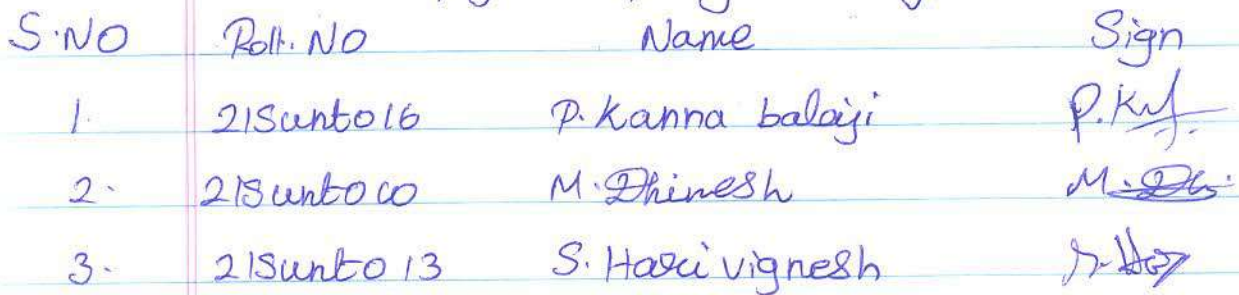 S.NO Roll.NO Name Sign
1. 21Sunt016 P. Kanna balaji P.K
2. 21Sunt0 M. Dhinesh M. Dh.
3. 21Sunt013 S. Hari vignesh S. Har